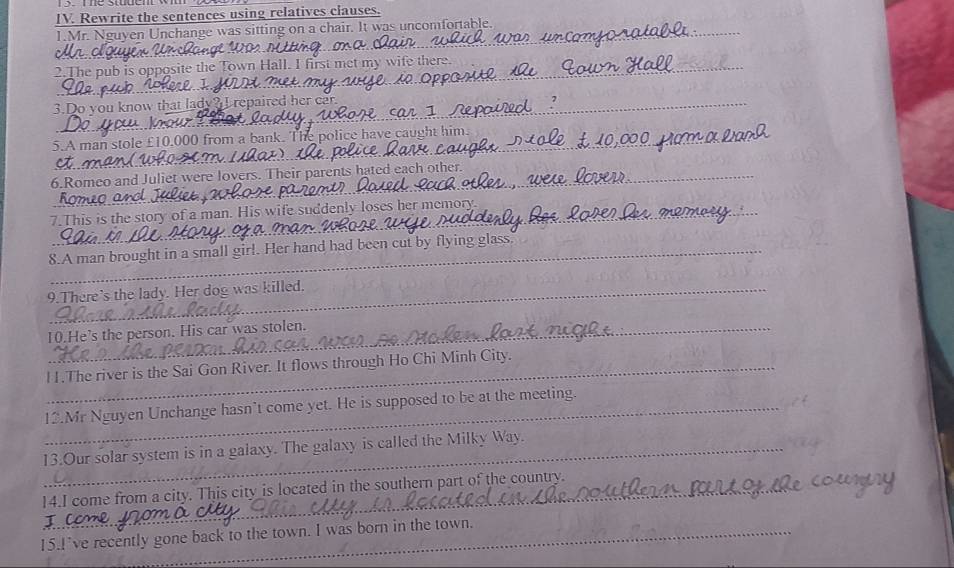 13. The student with
IV. Rewrite the sentences using relatives clauses.
1.Mr. Nguyen Unchange was sitting on a chair. It was uncomfortable.
Mr. Nguyen Unchange was sitting on a chair which was uncomforatable.
2.The pub is opposite the Town Hall. I first met my wife there.
The pub where I first met my wife is opposite the Town Hall
3.Do you know that lady? I repaired her car.
Do you know that lady, whose car I repaired ?
5.A man stole £10,000 from a bank. The police have caught him.
A man (who the police have caught stole £ 10,000 from a bank
6.Romeo and Juliet were lovers. Their parents hated each other.
Romeo and Juliet, whose parents hated each other, were lovers.
7.This is the story of a man. His wife suddenly loses her memory.
This is the story of a man whose wife suddenly loses her memory.
8.A man brought in a small girl. Her hand had been cut by flying glass.
9.There's the lady. Her dog was killed.
There's the lady
10.He's the person. His car was stolen.
He's the person his car was stolen last night.
11.The river is the Sai Gon River. It flows through Ho Chi Minh City.
12.Mr Nguyen Unchange hasn't come yet. He is supposed to be at the meeting.
13.Our solar system is in a galaxy. The galaxy is called the Milky Way.
14.I come from a city. This city is located in the southern part of the country.
I come from a city This city is located in the southern part of the country
15.I've recently gone back to the town. I was born in the town.